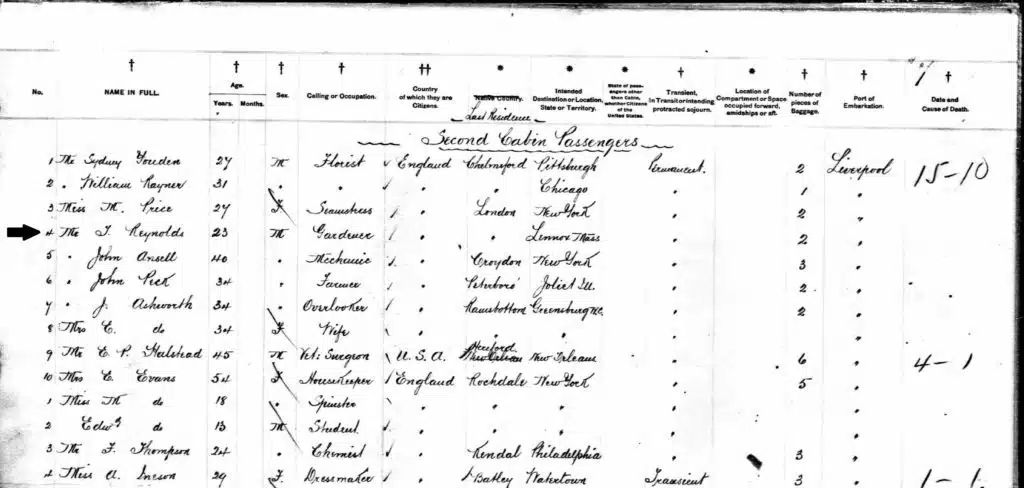 No. NAME IN FULL. Age. Years. Months. Sex. Calling or Occupation. Country of which they are Citizens. Native Country. Intended Destination or Location, State or Territory. State of passengers other than Cabin, whether Citizens of the United States. Transient, In Transit or intending protracted sojourn. Location of Compartment or Space occupied forward, amidships or aft. Number of pieces of Baggage. Port of Embarkation. Date and Cause of Death.
Last Residence
Second Cabin Passengers
1 Mr Sydney 27 M Florist England Chelmsford Pittsburgh Permanent. 2 Liverpool 15-10
2 " William Rayner 31 " " " " Chicago " 1 "
3 Miss M. Price 27 F Seamstress " London New York " 2 "
4 Mr Reynolds 23 M Gardener " " Lennox Mass " 2 "
5 " John Ansell 40 " Mechanic " Croydon New York " 3 "
6 " John Peck 34 " Farmer " Peterboro' Joliet Ill. " 2 "
7 " J. Ashworth 34 " Overlooker " Ramsbottom Greensburg " 2 "
8 Mrs E. do 34 F Wife " " " " "
9 Mr E. P. 45 M Vet: Surgeon U.S.A. Hereford New Orleans " 6 " 4-1
10 Mrs E. Evans 54 F Housekeeper England Rochdale New York " 5 "
1 Miss M do 18 " Spinster " " " " "
2 Edwd do 13 M Student " " " " "
3 Mr F. Thompson 24 " Chemist " Kendal Philadelphia " 3 "
4 Miss A. Ineson 29 F Dressmaker " Batley Watertown Transient 3 "